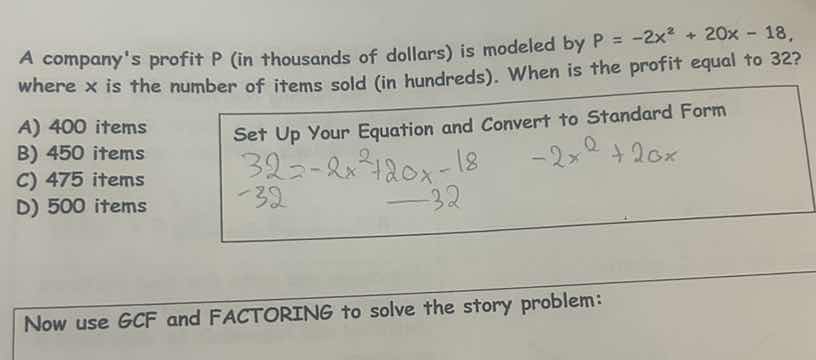 A company's profit P (in thousands of dollars) is modeled by P = -2x² + 20x - 18,
where x is the number of items sold (in hundreds). When is the profit equal to 32?
A) 400 items
B) 450 items
C) 475 items
D) 500 items
Set Up Your Equation and Convert to Standard Form
32=-2x²+20x-18
-2x² +20x
-32
-32
Now use GCF and FACTORING to solve the story problem: